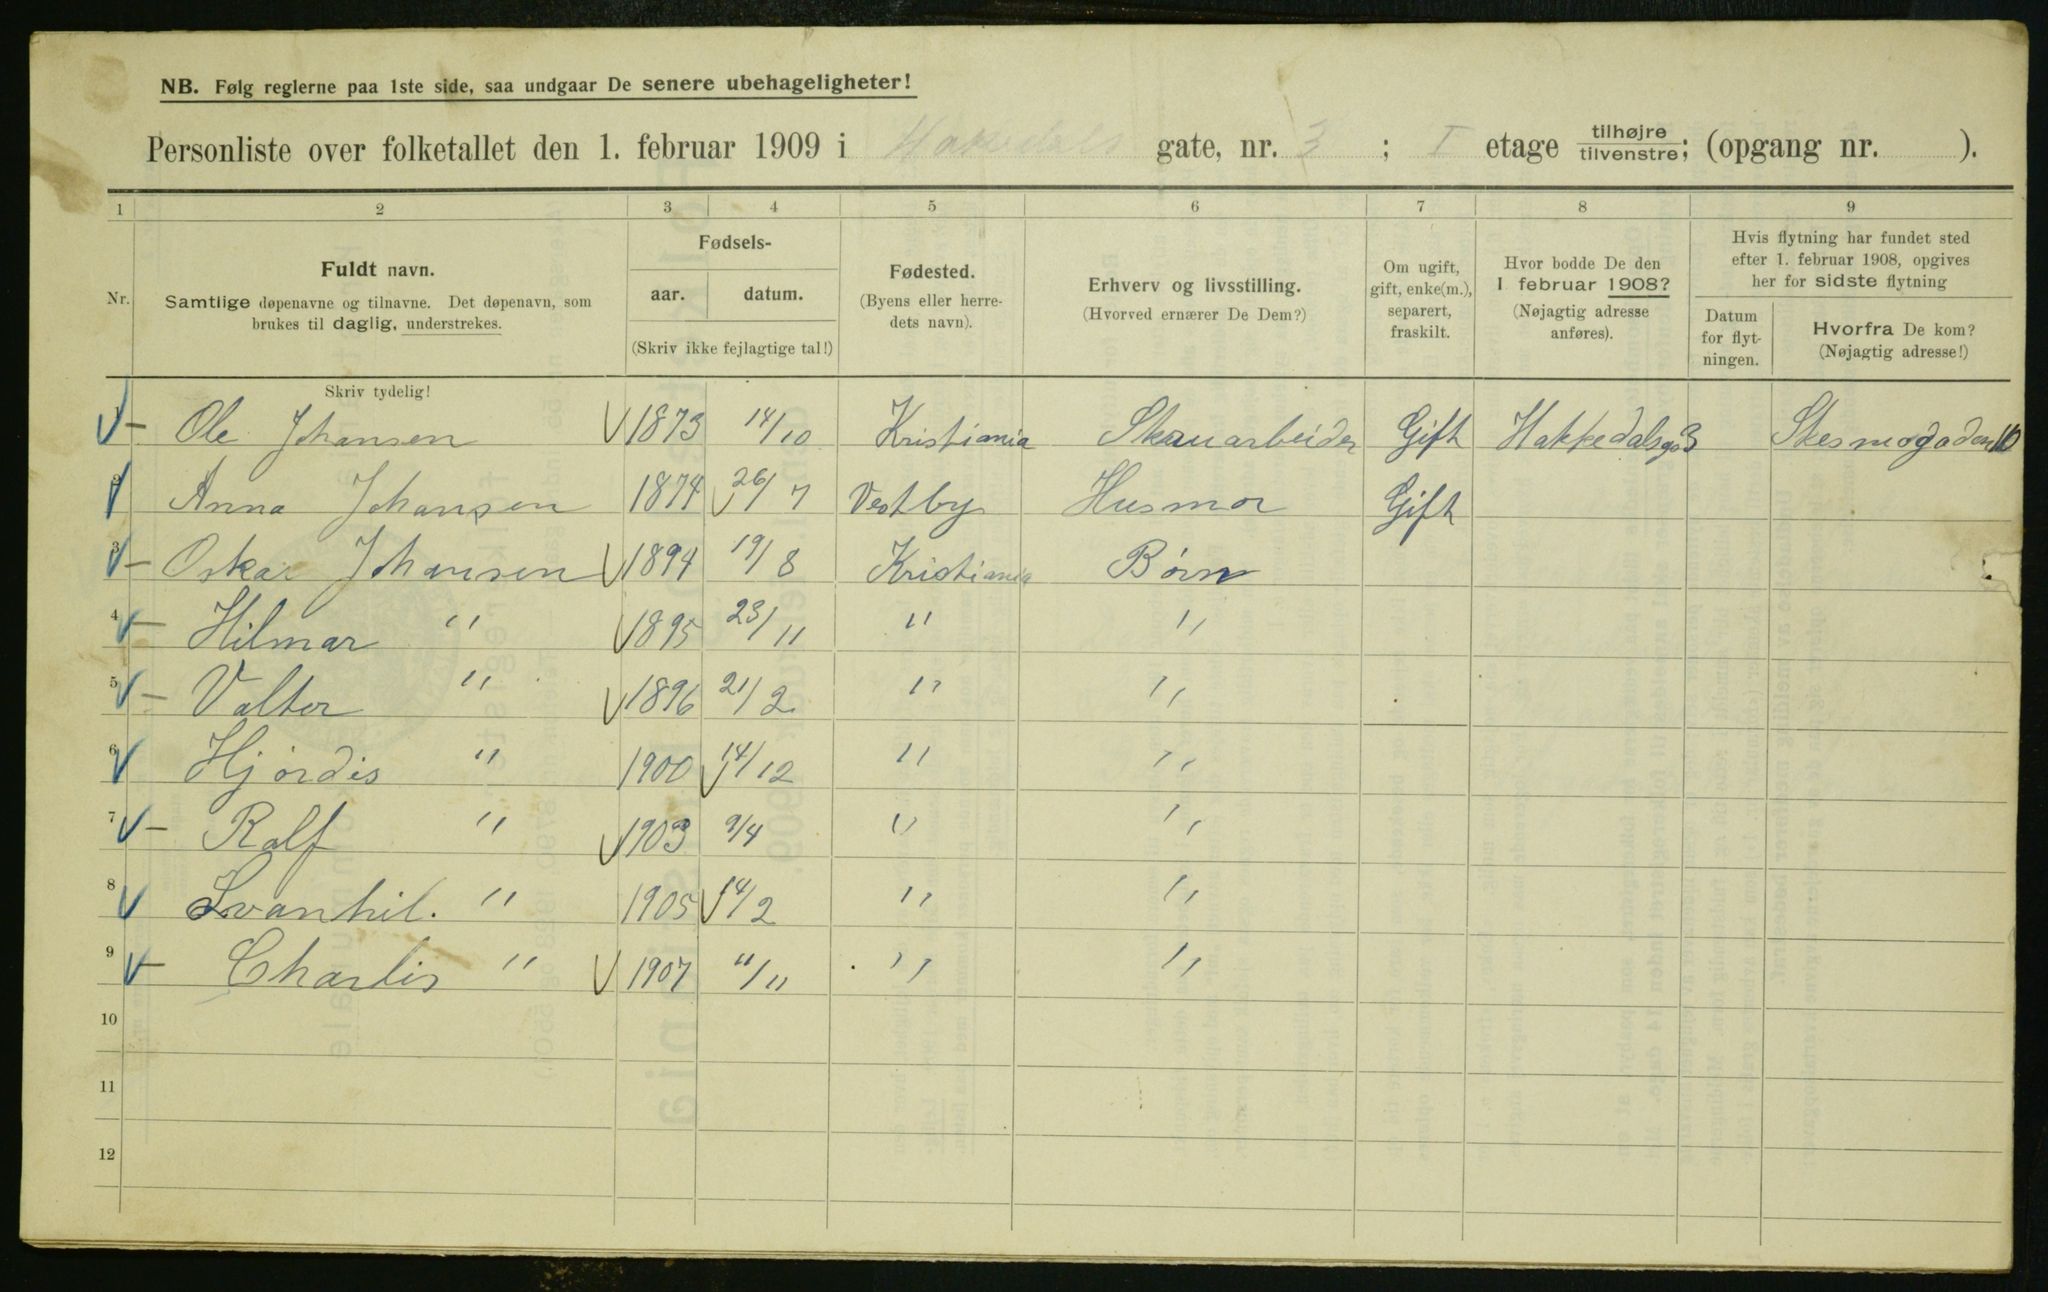 NB. Følg reglerne paa 1ste side, saa undgaar De senere ubehageligheter!
Personliste over folketallet den 1. februar 1909 i Hakedals gate, nr. 3 ; I etage tilhøjre/tilvenstre; (opgang nr. ).
1 2 3 4 5 6 7 8 9
Nr.
Fuldt navn.
Samtlige døpenavne og tilnavne. Det døpenavn, som
brukes til daglig, understrekes.
Skriv tydelig!
Fødsels-
aar. datum.
(Skriv ikke fejlagtige tal!)
Fødested.
(Byens eller herre-
dets navn).
Erhverv og livsstilling.
(Hvorved ernærer De Dem?)
Om ugift,
gift, enke(m.),
separert,
fraskilt.
Hvor bodde De den
1. februar 1908?
(Nøjagtig adresse
anføres).
Hvis flytning har fundet sted
efter 1. februar 1908, opgives
her for sidste flytning
Datum
for flyt-
ningen.
Hvorfra De kom?
(Nøjagtig adresse!)
1 Ole Johansen 1873 14/10 Kristiania Skruarbeider Gift Hakkedalsg 3 Skesmogaden 10
2 Anna Johansen 1874 26/7 Vestby Husmor Gift
3 Oskar Johansen 1894 19/8 Kristiania Børn
4 Hilmar " 1895 23/11 " "
5 Valter " 1896 21/2 " "
6 Hjørdis " 1900 14/12 " "
7 Ralf " 1903 9/4 " "
8 Svanhil. " 1905 14/2 " "
9 Charlis " 1907 11/11 " "
10
11
12